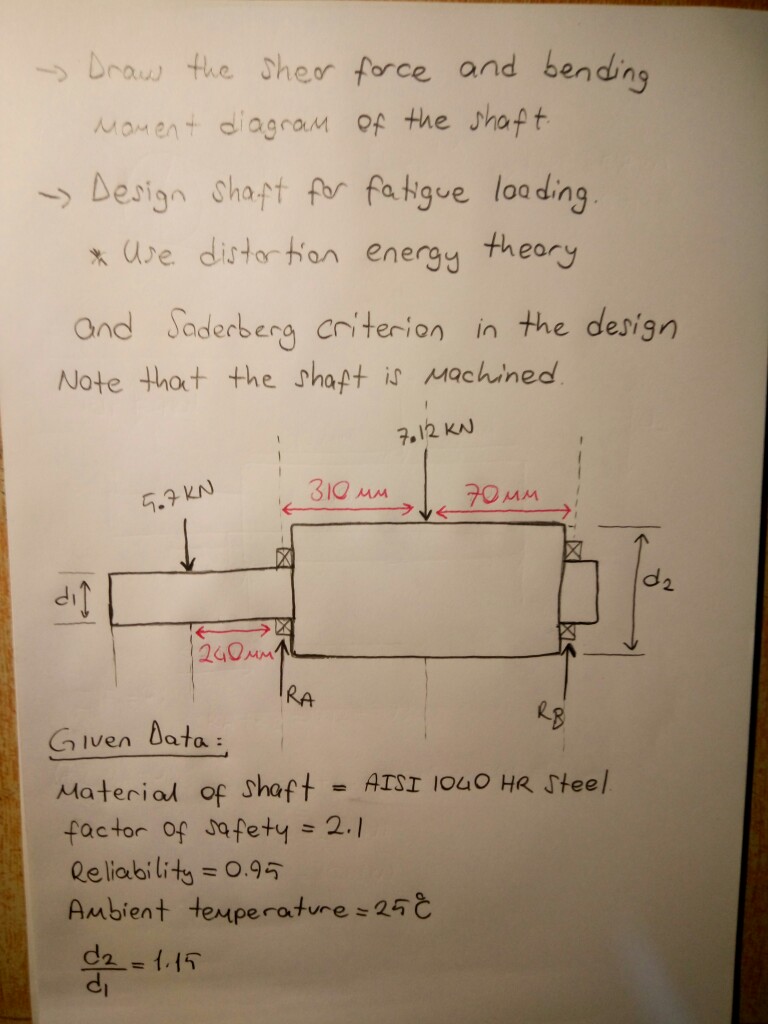 → Draw the shear force and bending
moment diagram of the shaft.
→ Design shaft for fatigue loading.
* Use distortion energy theory
and Soderberg criterion in the design
Note that the shaft is machined.
7.12 KN
5.7 KN
310 mm
70 mm
d1
d2
240 mm
RA
RB
Given Data:
Material of shaft = AISI 1040 HR Steel
factor of safety = 2.1
Reliability = 0.95
Ambient temperature = 25°C
d2/d1 = 1.15